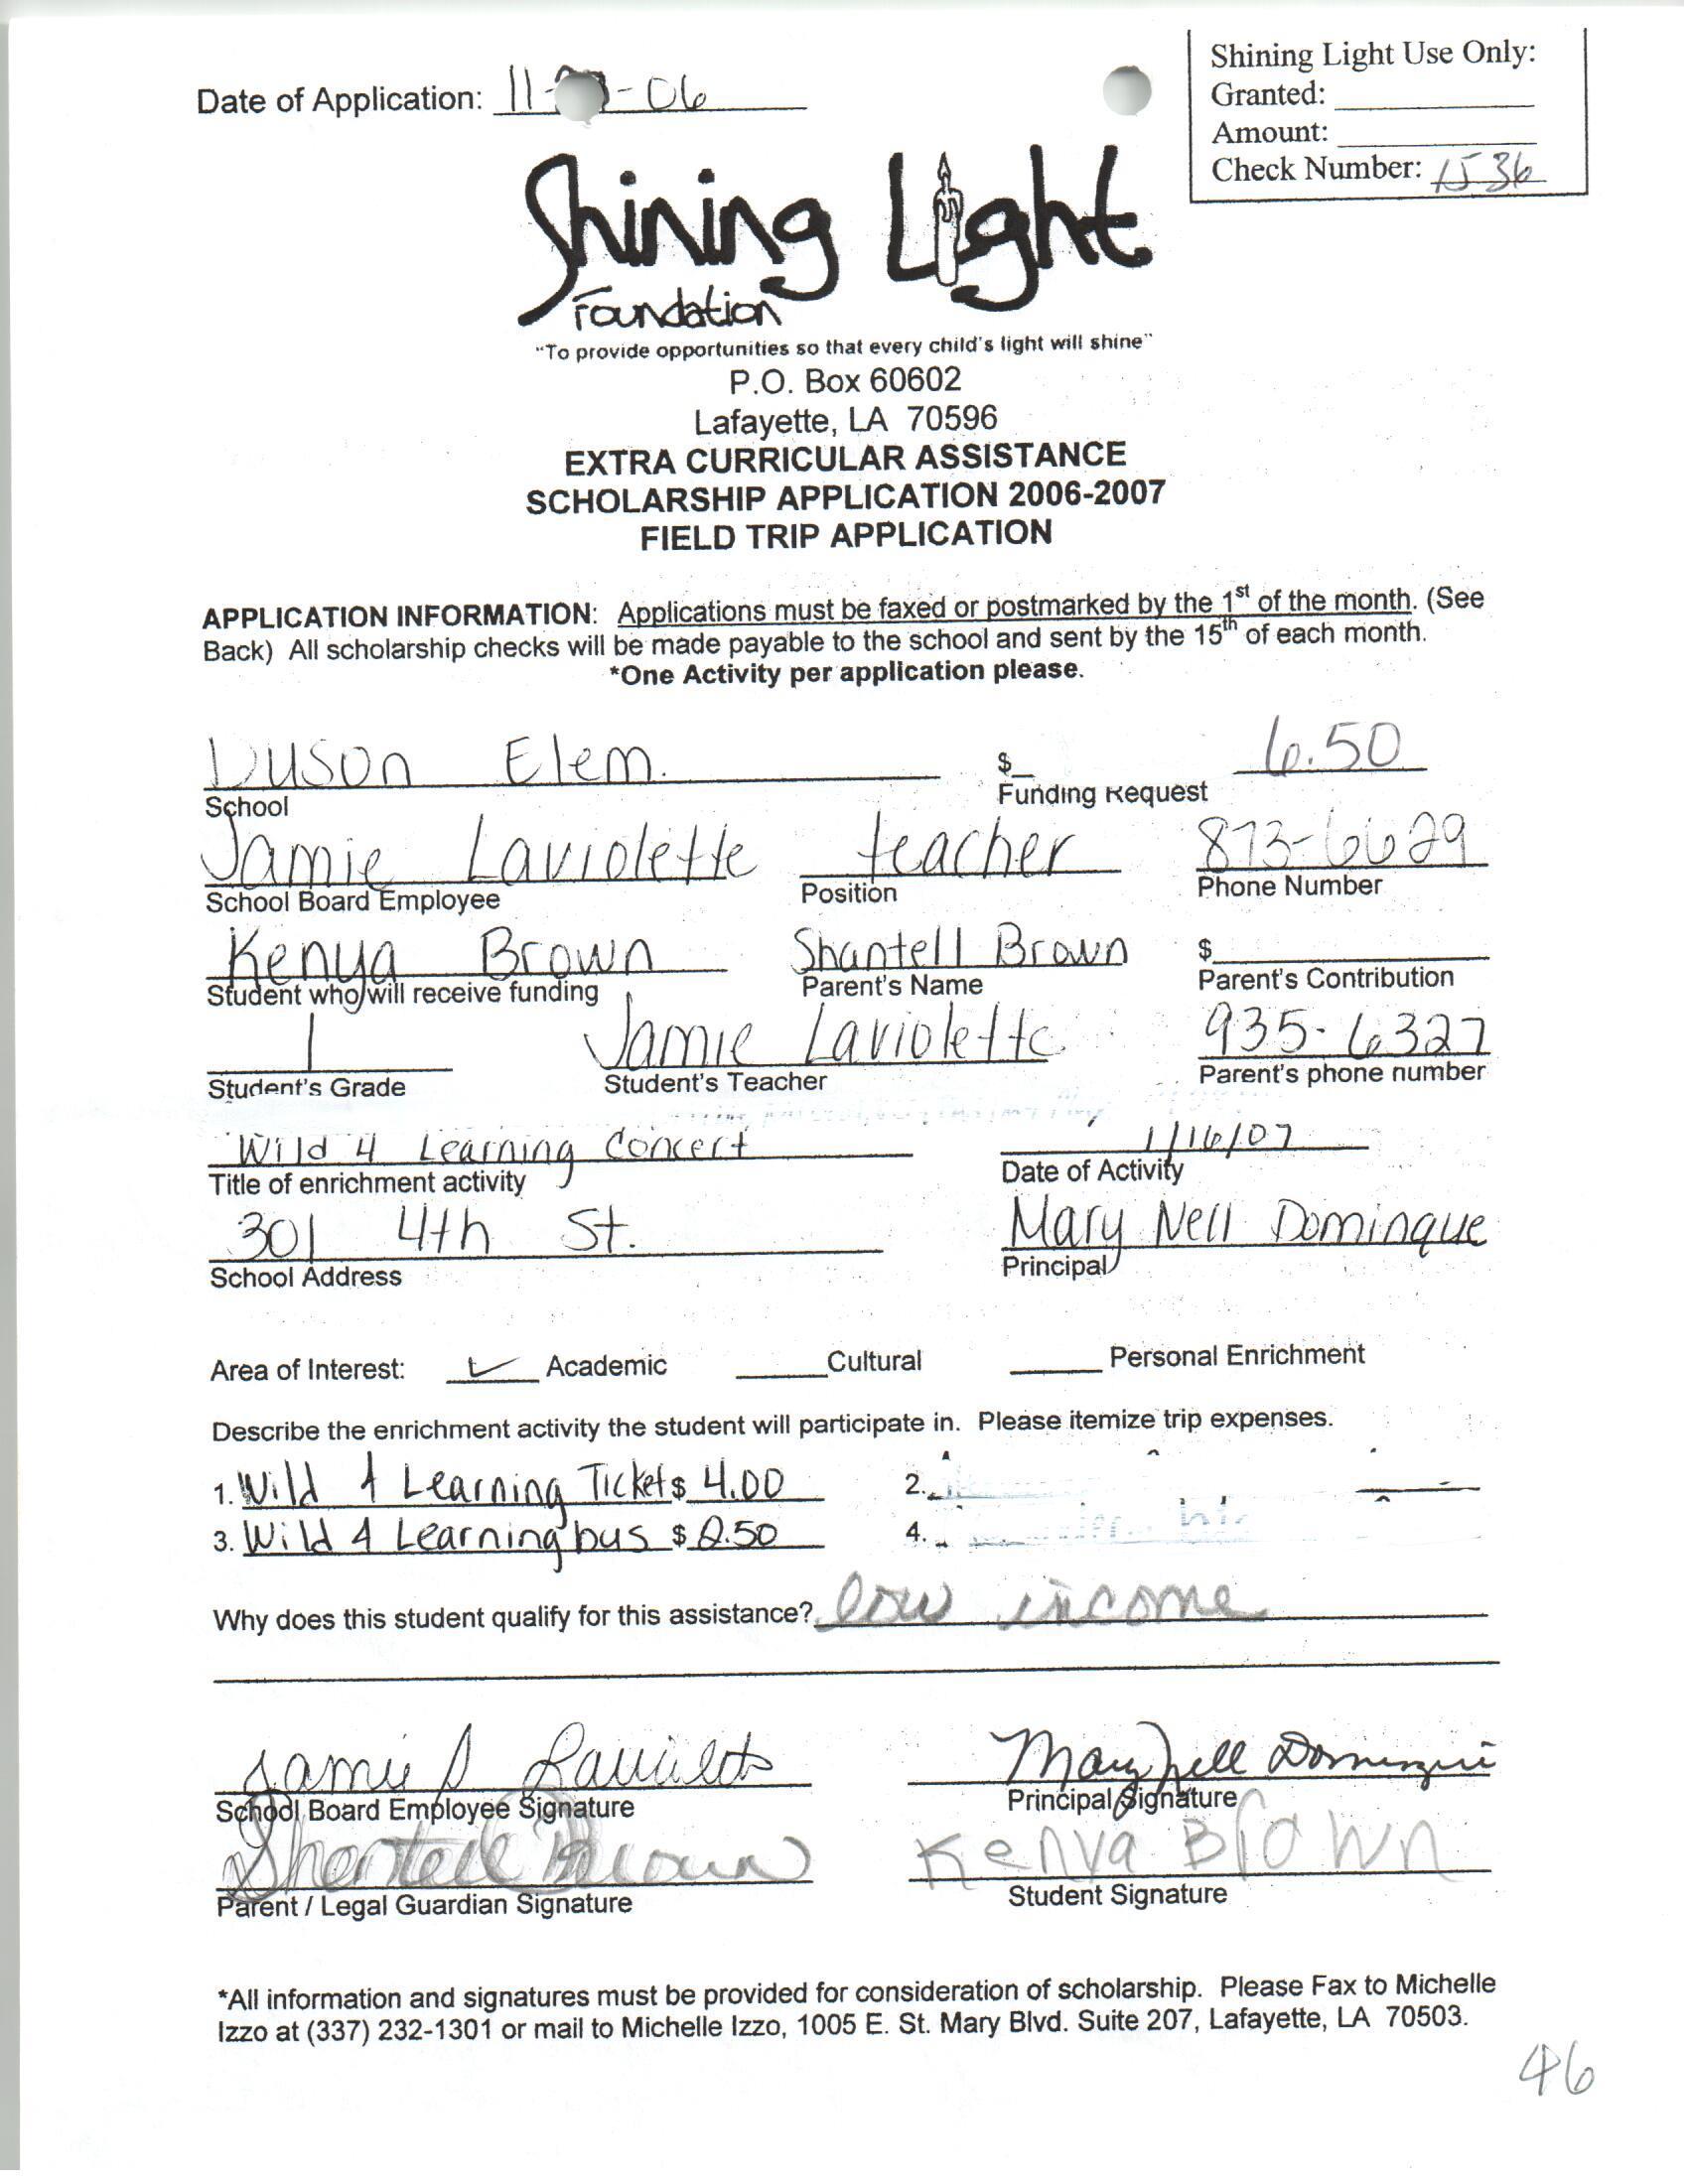 Shining Light Use Only:
Date of Application: 11- -06
Granted:
Amount:
Check Number: 1536
Shining Light
Foundation
"To provide opportunities so that every child's light will shine"
P.O. Box 60602
Lafayette, LA 70596
EXTRA CURRICULAR ASSISTANCE
SCHOLARSHIP APPLICATION 2006-2007
FIELD TRIP APPLICATION
APPLICATION INFORMATION: Applications must be faxed or postmarked by the 1st of the month. (See
Back) All scholarship checks will be made payable to the school and sent by the 15th of each month.
*One Activity per application please.
Duson Elem. $ 6.50
School Funding Request
Jamie Laviolette teacher 873-6629
School Board Employee Position Phone Number
Kenya Brown Shantell Brown $
Student who will receive funding Parent's Name Parent's Contribution
1 Jamie Laviolette 935-6327
Student's Grade Student's Teacher Parent's phone number
Wild 4 Learning Concert 1/16/07
Title of enrichment activity Date of Activity
301 4th St. Mary Nell Dominque
School Address Principal
Area of Interest: Academic Cultural Personal Enrichment
Describe the enrichment activity the student will participate in. Please itemize trip expenses.
1. Wild 4 Learning Tickets 4.00 2.
3. Wild 4 Learning bus $2.50 4.
Why does this student qualify for this assistance? low income
Jamie Laviolette Mary Nell Dominque
School Board Employee Signature Principal Signature
Shantell Brown Kenya Brown
Parent / Legal Guardian Signature Student Signature
*All information and signatures must be provided for consideration of scholarship. Please Fax to Michelle
Izzo at (337) 232-1301 or mail to Michelle Izzo, 1005 E. St. Mary Blvd. Suite 207, Lafayette, LA 70503.
46